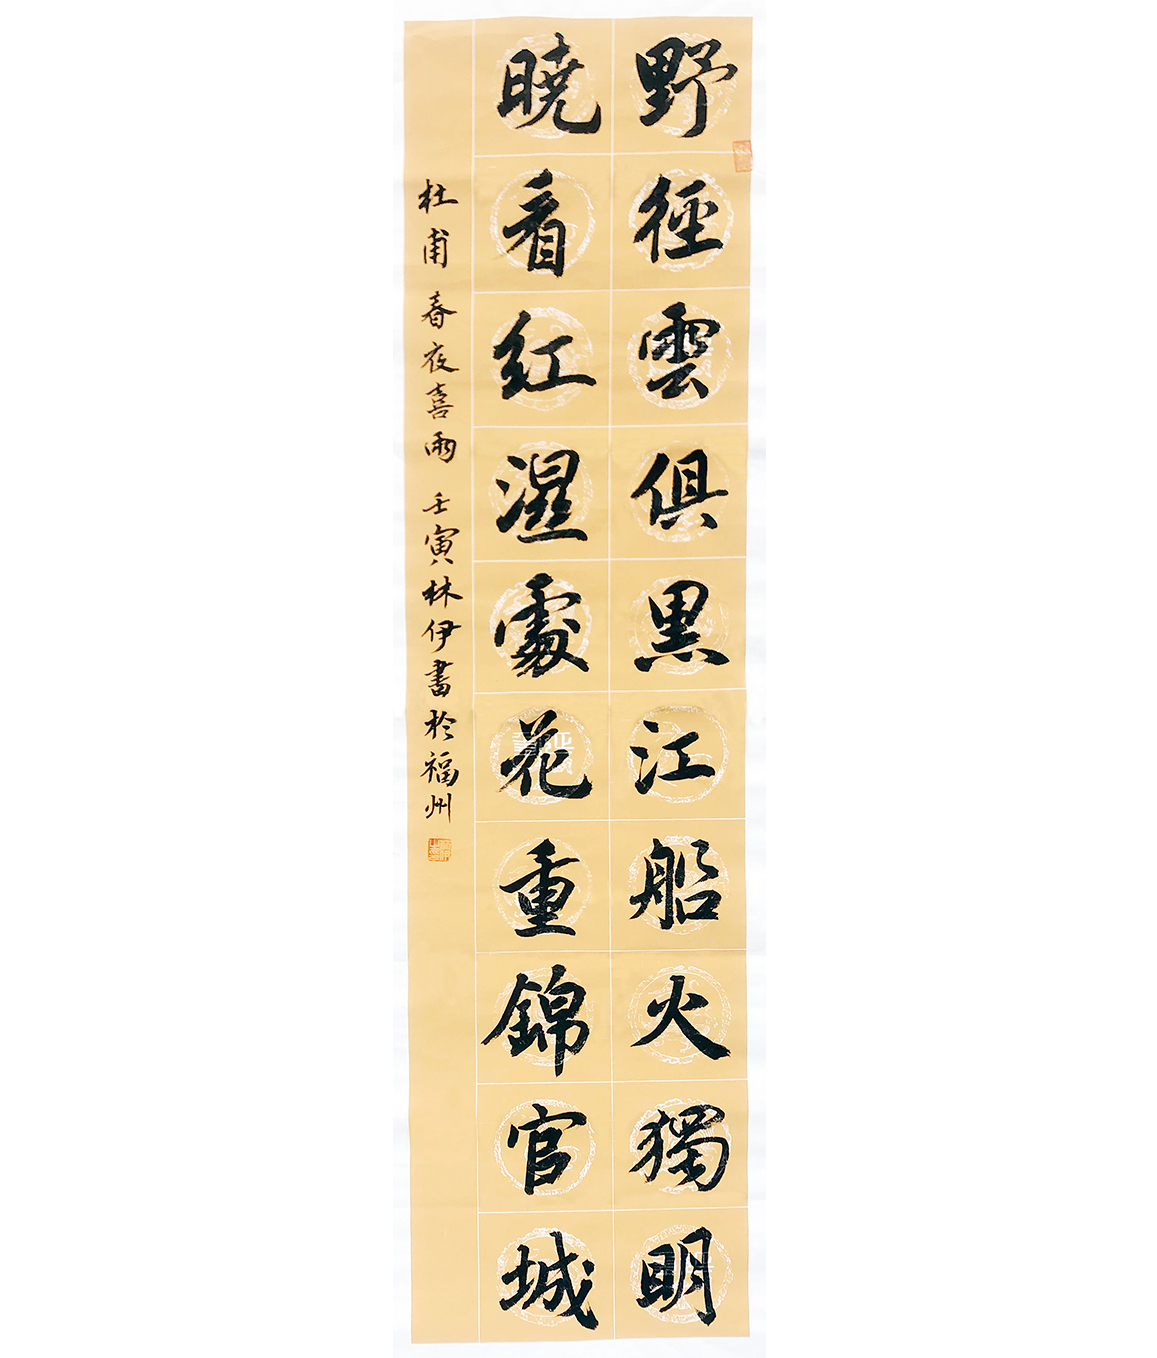 野徑雲俱黑江船火獨明
曉看紅濕處花重錦官城
杜甫春夜喜雨壬寅林伊書於福州